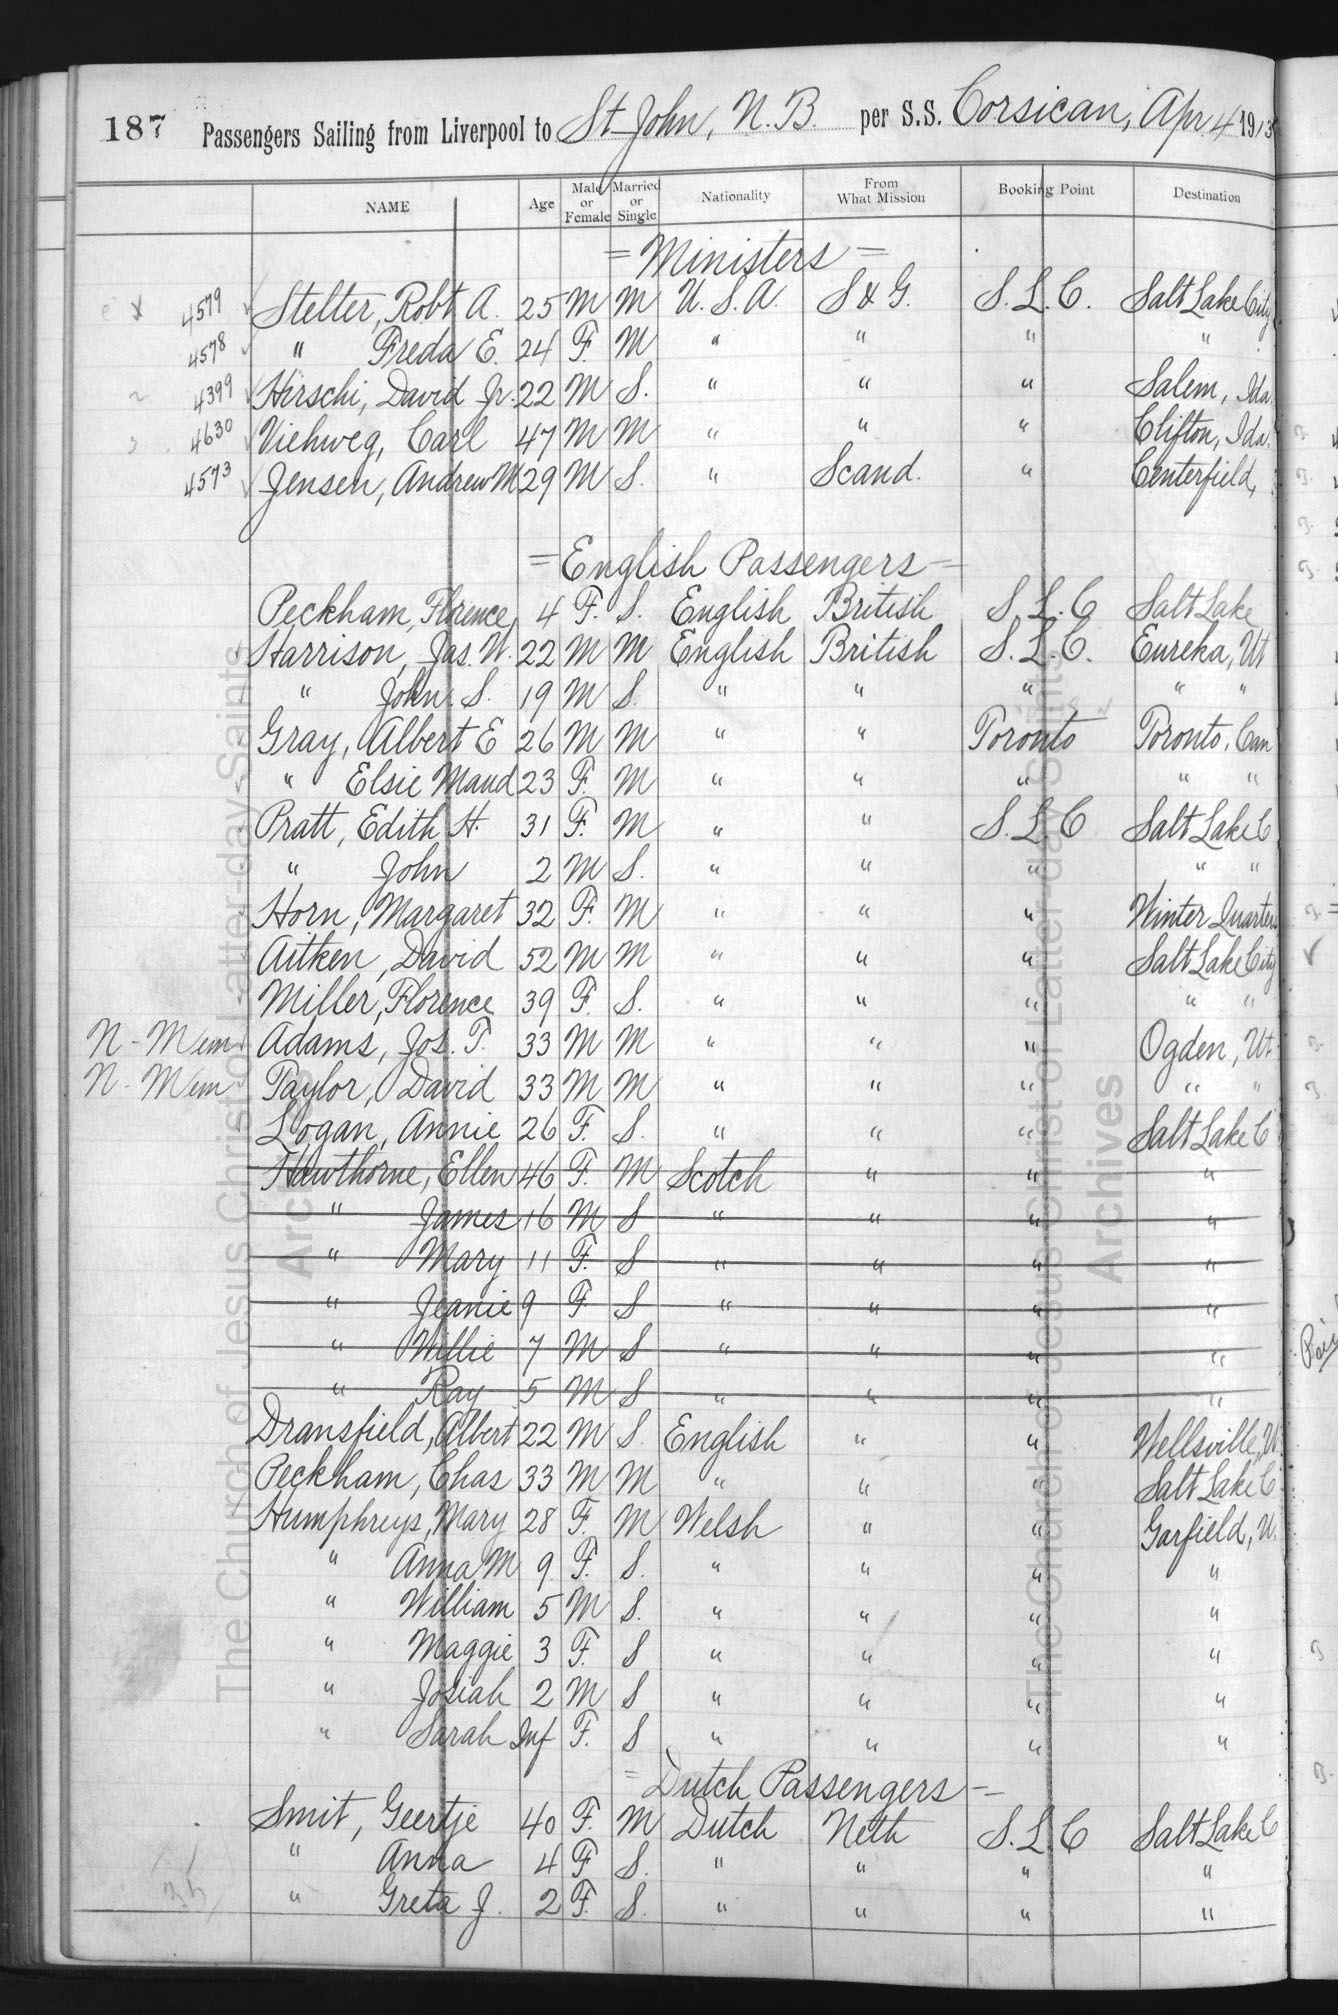 187 Passengers Sailing from Liverpool to St. John, N.B. per S.S. Corsican, Apr 4 1913
NAME Age Male or Female Married or Single Nationality From What Mission Booking Point Destination
= Ministers =
4579 Stelter, Robt A. 25 M M U.S.A. S & G. S.L.C. Salt Lake City
4578 " Freda E. 24 F. M " " " "
4399 Hirschi, David Jr. 22 M S. " " " Salem, Ida.
4630 Viehweg, Carl 47 M M " " " Clifton, Ida.
4573 Jensen, Andrew M 29 M S. " Scand. " Centerfield,
= English Passengers =
Peckham, Florence, 4 F. S. English British S.L.C Salt Lake
Harrison, Jas. W. 22 M M English British S.L.C. Eureka, Ut
" John S. 19 M S. " " " " "
Gray, Albert E 26 M M " " Toronto Toronto, Can
" Elsie Maud 23 F. M " " " " "
Pratt, Edith H. 31 F. M " " S.L.C Salt Lake C
" John 2 M S. " " " " "
Horn, Margaret 32 F. M " " " Winter Quarters
Aitken, David 52 M M " " " Salt Lake City
Miller, Florence 39 F. S. " " " " "
N - Mem Adams, Jos. T. 33 M M " " " Ogden, Ut.
N - Mem Taylor, David 33 M M " " " " "
Logan, Annie 26 F. S. " " " Salt Lake C
Hawthorne, Ellen 46 F. M Scotch " " "
" James 16 M S " " " "
" Mary 11 F. S " " " "
" Jeanie 9 F S " " " "
" Willie 7 M S " " " "
" Ray 5 M S " " " "
Dransfield, Albert 22 M S. English " " Wellsville, U
Peckham, Chas 33 M M " " " Salt Lake C
Humphreys, Mary 28 F. M Welsh " " Garfield, U.
" Anna M 9 F. S. " " " "
" William 5 M S. " " " "
" Maggie 3 F. S " " " "
" Josiah 2 M S " " " "
" Sarah Inf F. S " " " "
= Dutch Passengers =
Smit, Geertje 40 F. M Dutch Neth S.L.C Salt Lake C
" Anna 4 F S. " " " "
" Greta J. 2 F. S. " " " "
35
The Church of Jesus Christ of Latter-day Saints
Archives
The Church of Jesus Christ of Latter-day Saints
Archives